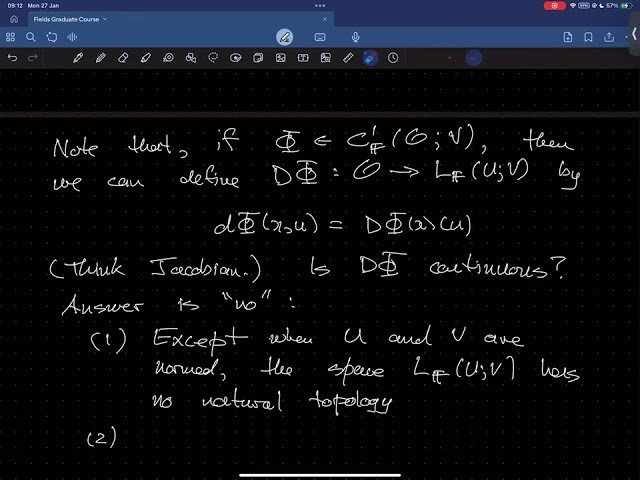 09:12 Mon 27 Jan
57%
Fields Graduate Course
Note that, if Φ ∈ C¹_𝔽(O; V), then
we can define DΦ : O → L_𝔽(U; V) by
dΦ(x, u) = DΦ(x)(u)
(Think Jacobian.) Is DΦ continuous?
Answer is "no":
(1) Except when U and V are
normed, the space L_𝔽(U; V) has
no natural topology
(2)